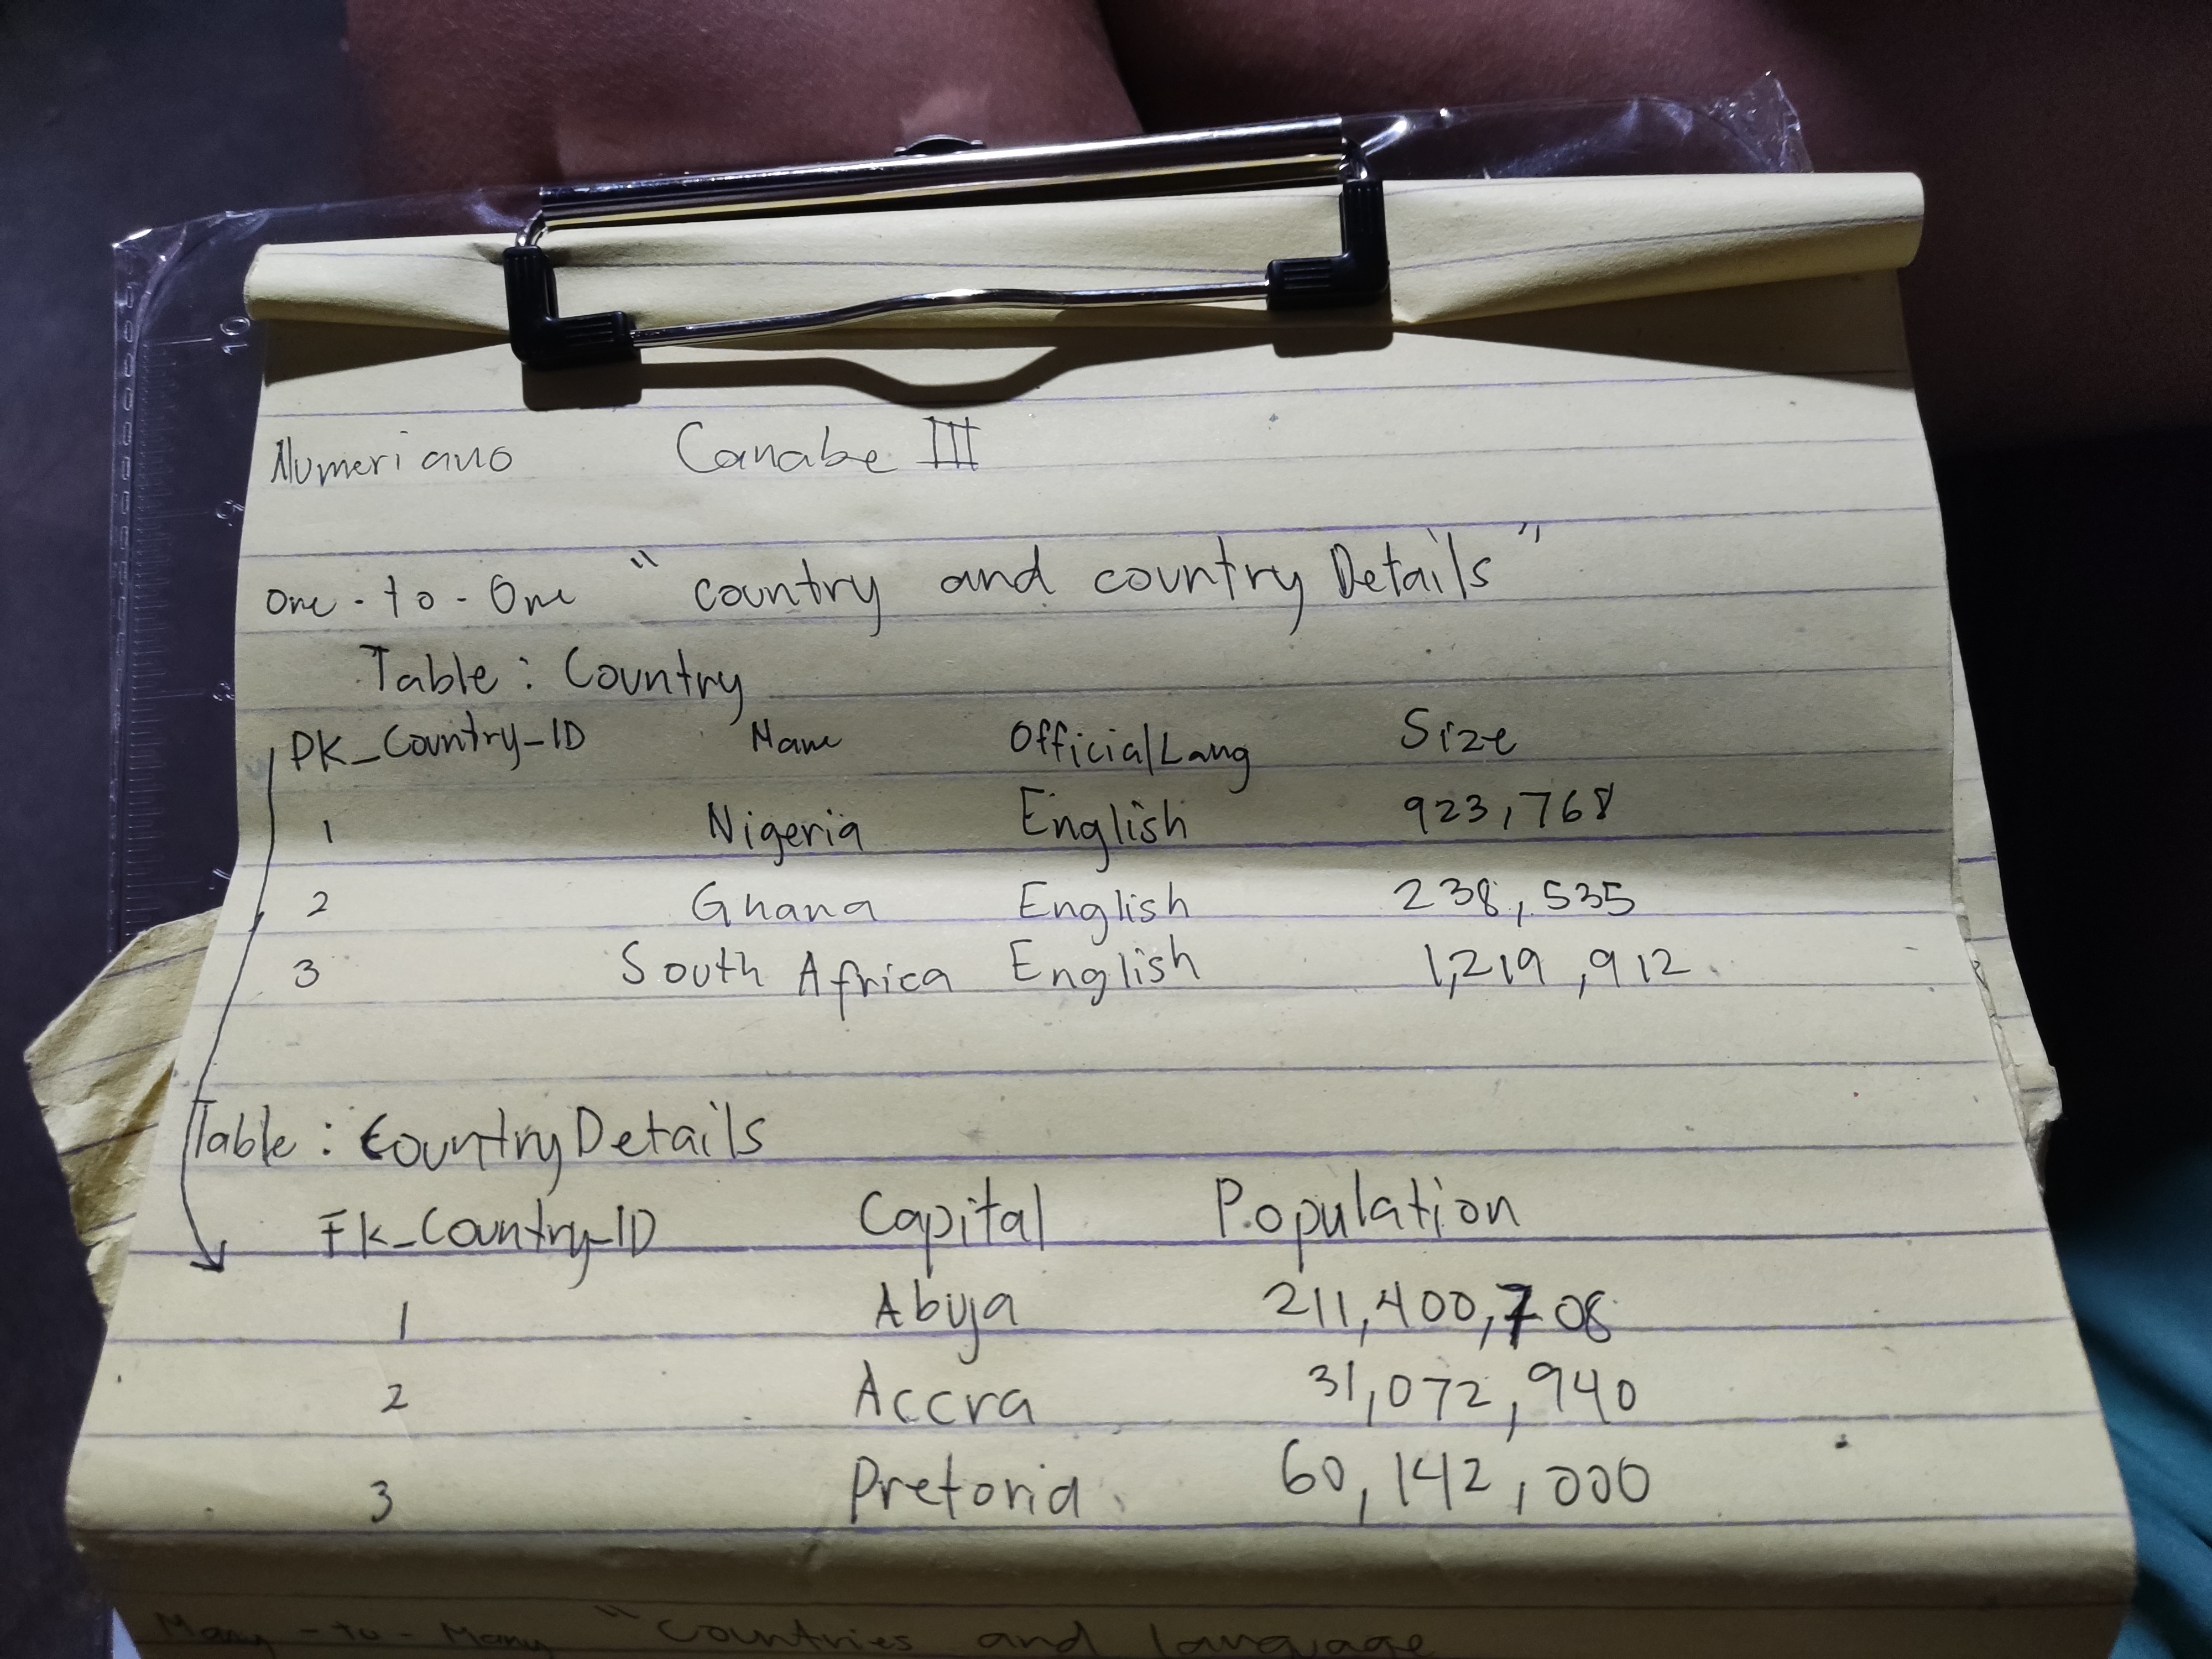 10
Numeriano Canabe III
9
One-to-One "country and countryDetails"
Table: Country
8
PK_Country_ID Name OfficialLang Size
1 Nigeria English 923,768
7
2 Ghana English 238,535
3 South Africa English 1,219,912
Table: CountryDetails
FK_Country_ID Capital Population
1 Abuja 211,400,708
2 Accra 31,072,940
3 Pretoria 60,142,000
Many-to-Many "Countries and language